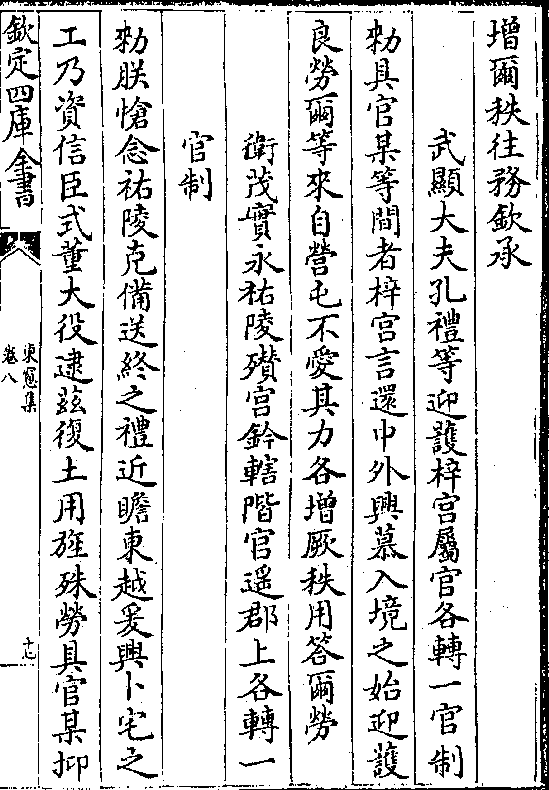 增爾秩往務欽承
武顯大夫孔禮等迎護梓宮屬官各轉一官制
勑具官某等間者梓宮言還中外興慕入境之始迎護
良勞爾等來自營屯不愛其力各增厥秩用答爾勞
衛茂實永祐陵殯宮鈐轄階官遥郡上各轉一
官制
勑朕愴念祐陵克備送終之禮近瞻東越爰興卜宅之
工乃資信臣式董大役逮兹復土用旌殊勞具官某抑
欽定四庫全書
東窻集
卷八
十七